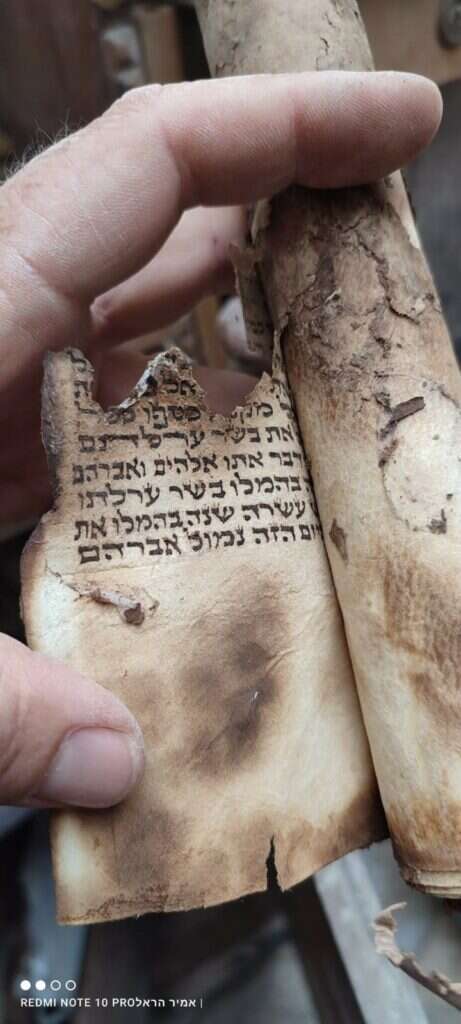 כספו
את בשר ערלתם
דבר אתו אלהים ואברהם
בהמלו בשר ערלתו
עשרה שנה בהמלו את
יום הזה נמול אברהם
REDMI NOTE 10 PRO | אמיר הראל